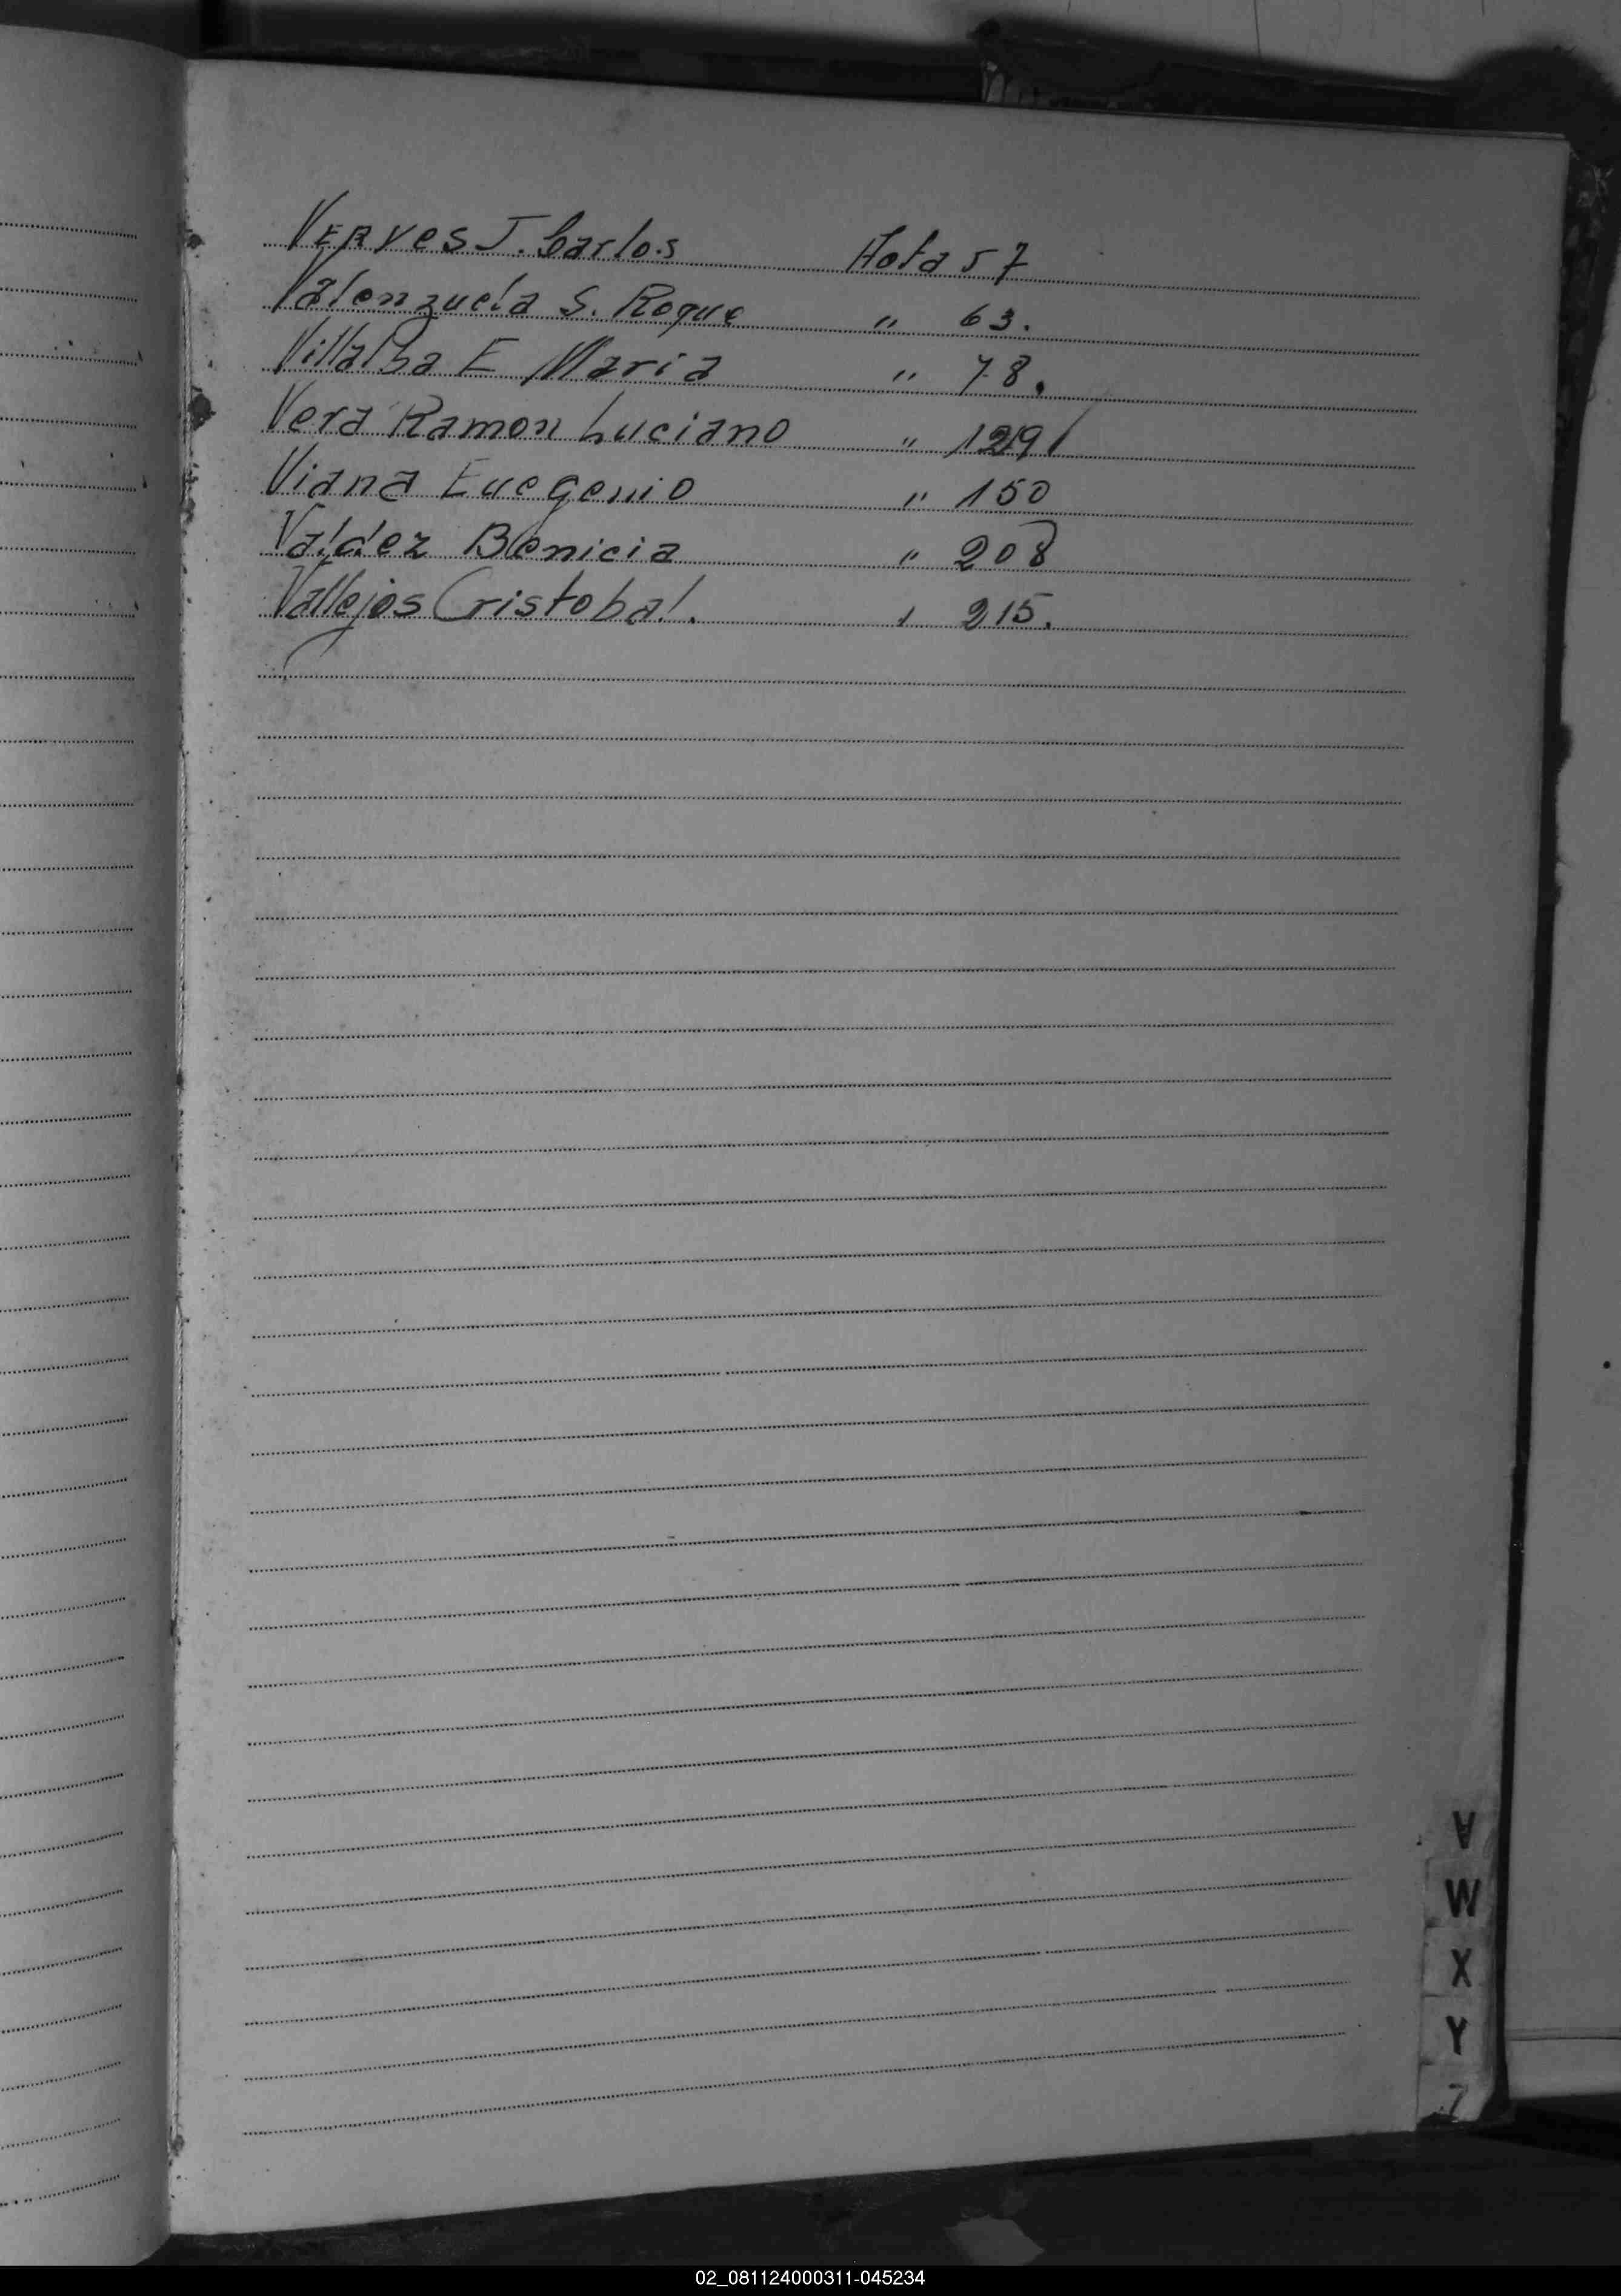 Verves J. Carlos Hota 57
Valenzuela S. Roque " 63.
Villalba E Maria " 78.
Vera Ramon Luciano " 129
Viana Euegenio " 150
Valdez Benicia " 208
Vallejos Cristobal. " 215.
V
W
X
Y
Z
02_081124000311-045234